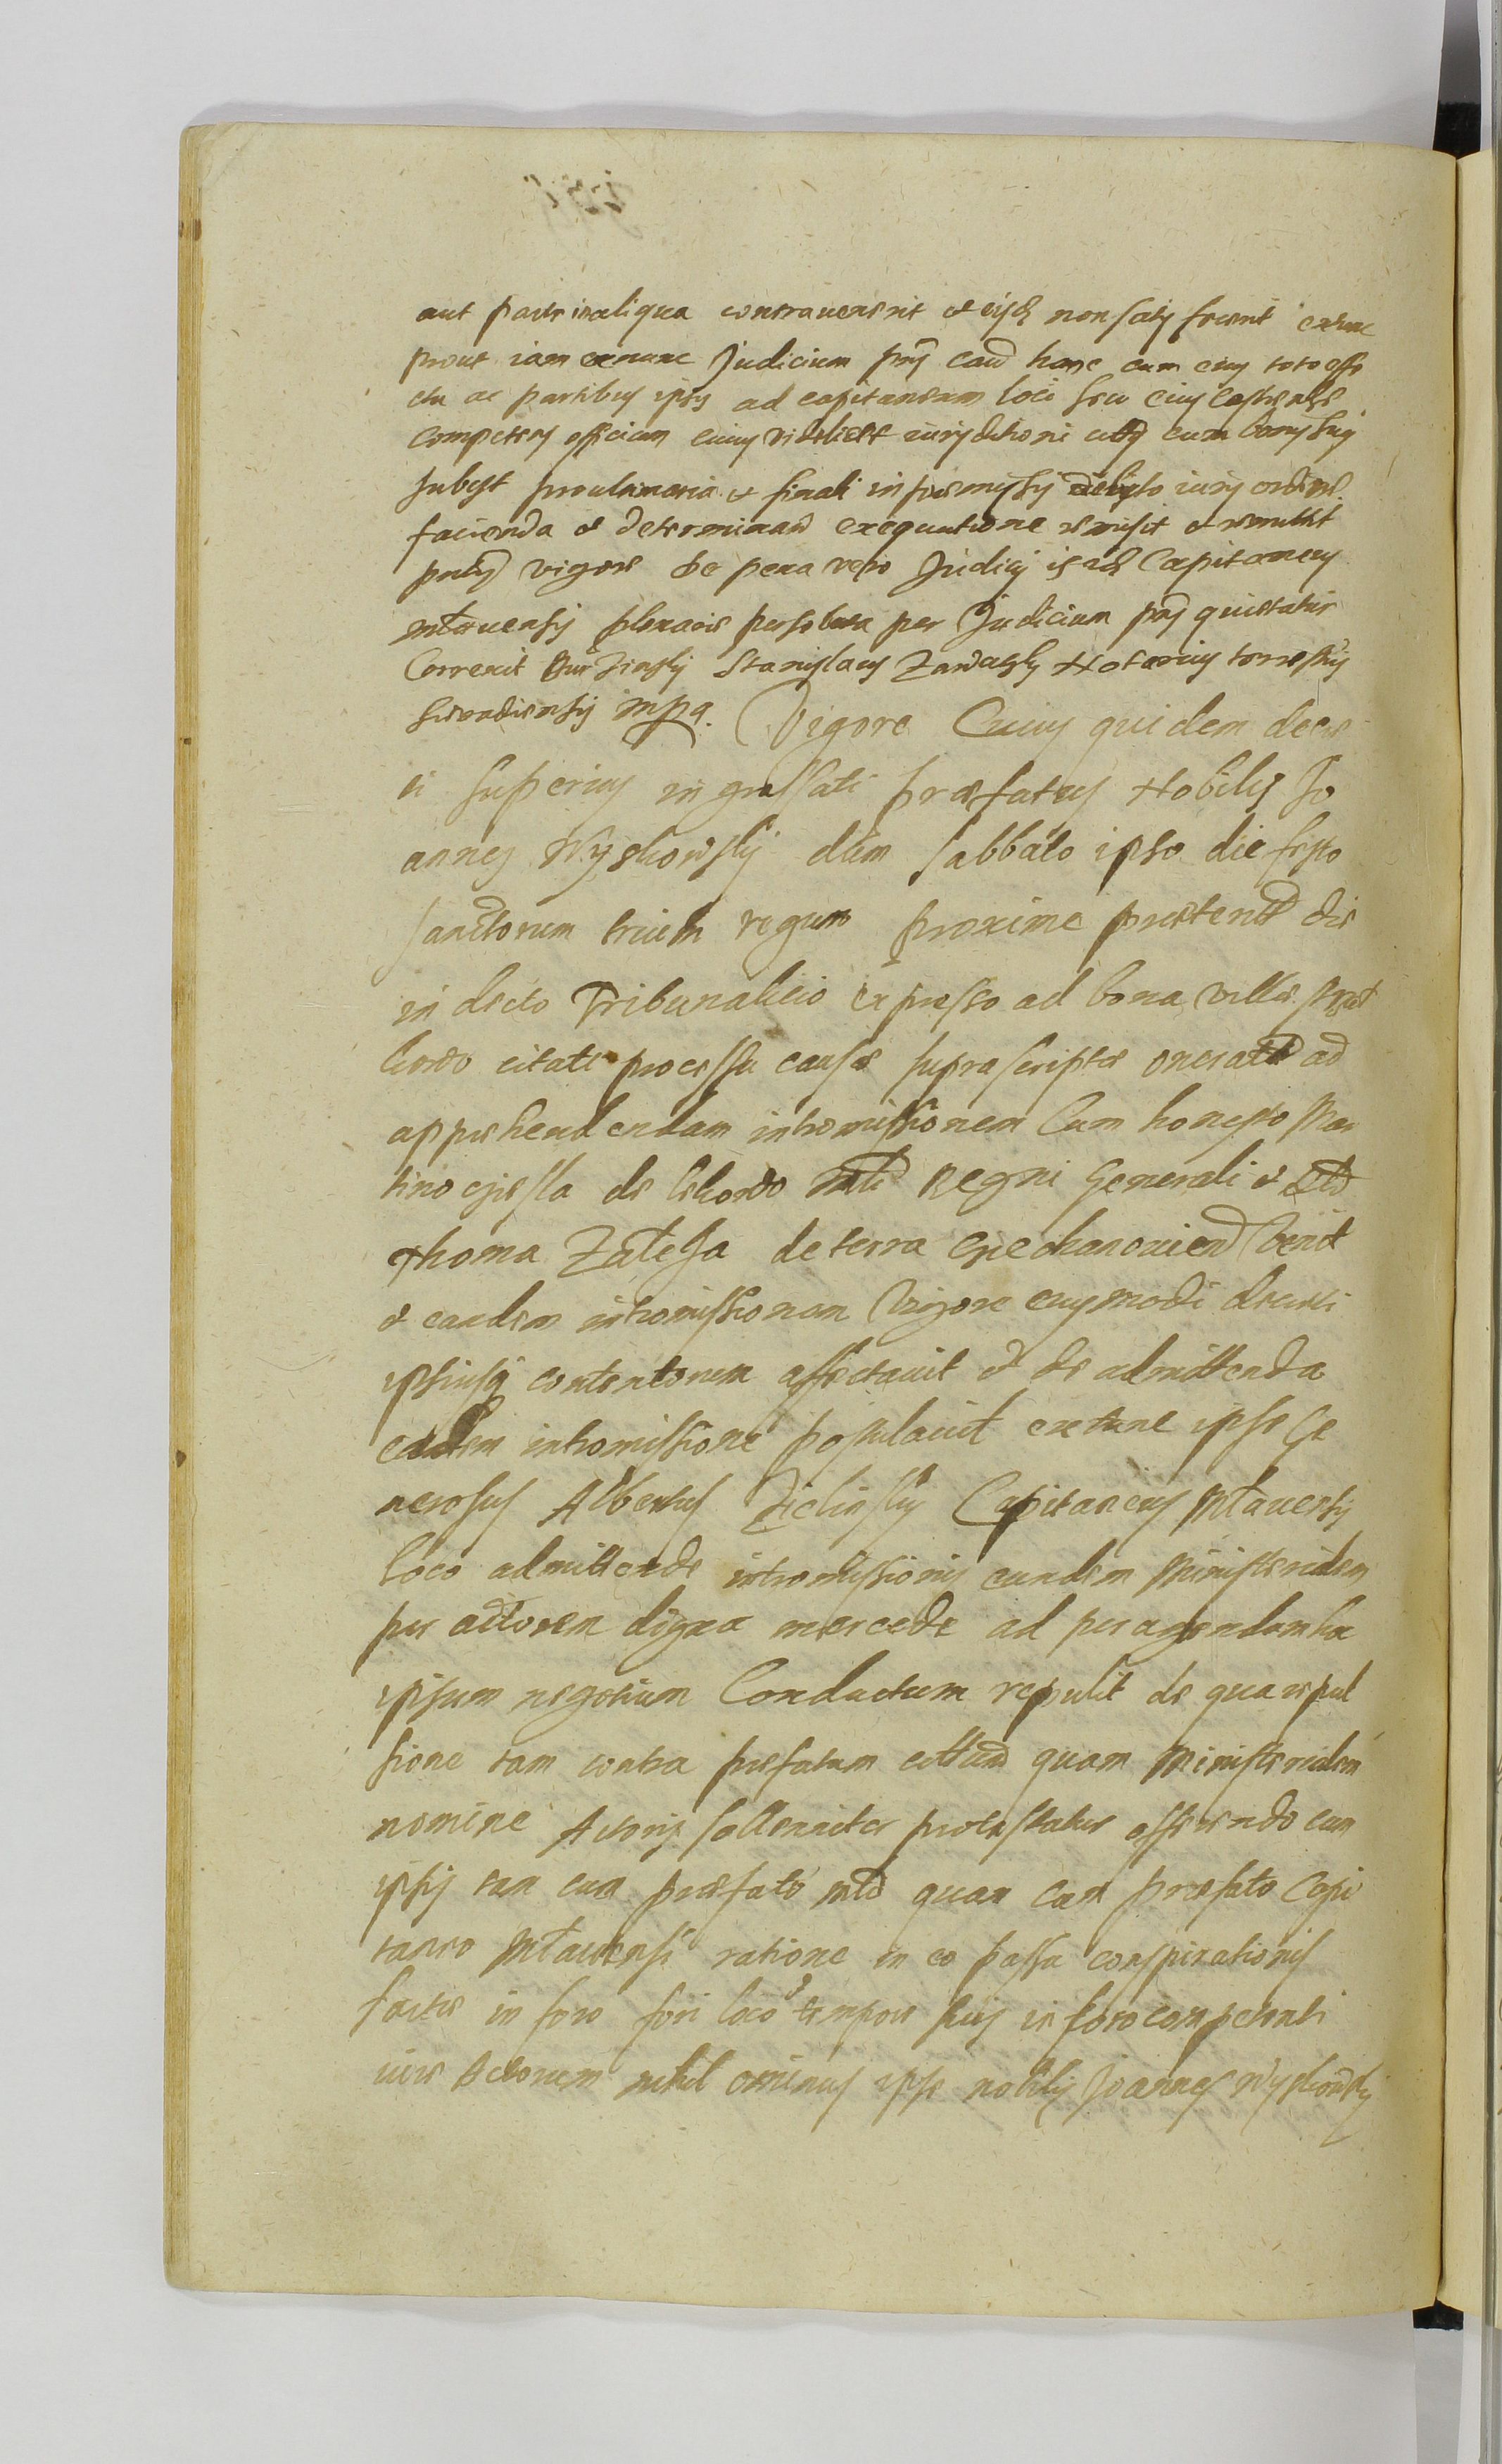 aut parte in aliqua contravenerit et eisdē non satis fecerit extunc
prout iam exnunc Judicium pns caūs hanc cum eius toto effe
ctu ac partibus ipsis ad capitaneum loci seu eius castrense
competens officium cuius videlicet iurisditioni citts cum bonis suis
subest pro ulterioria et finali in premissis debito iuris ordine
facienda et determinand exequutione remisit et remittit
pntis vigore de pena vero Judicii is idē Capitaneus
mlauensis plenarie persoluta per Judicium pns quietatur
Correxit Burzinsky Stanislaus Zawadsky Notarius terrestris
Siradiensis mpa. Vigore Cuius quidem decre
ti superius ingrossati præfatus Nobilis Jo
annes Wyskowsky dum sabbato ipso die festo
sanctorum trium regum proxime preterit die
in decto Tribunalicio expresso ad bona villæ
citati processu causæ suprascriptæ onerate ad
apprehendendam intromissionem Cum honesto Mar
tino de Lekowo mtli Regni Generali et
Thoma Zalesa de terra Ciechanouiens venit
et eandem intromissionem Vigore eiusmodi decreti
ipsiusq contentorum affectauit et de admittenda
eadem intromissione postulauit extunc ipse Ge
nerosus Albertus Zielinsky Capitaneus Mlauensis
loco admittende intromissionis eundem Ministerialem
per actorem digna mercede ad peragendum hoc
ipsum negotium Conductum repulit de qua repul
sione tam contra prefatum cittum quam Ministerialem
nomine Actoris sollenniter protestatus offerendo cum
ipsis tam cum præfato mtli quam cum præfato Capi
taneo Mlauensi ratione in eo passu conspirationis
factæ in foro fori loco et tempore suis in foro competenti
iure Actorem nihil ominus ipse nobilis Joannes Wyskowsky